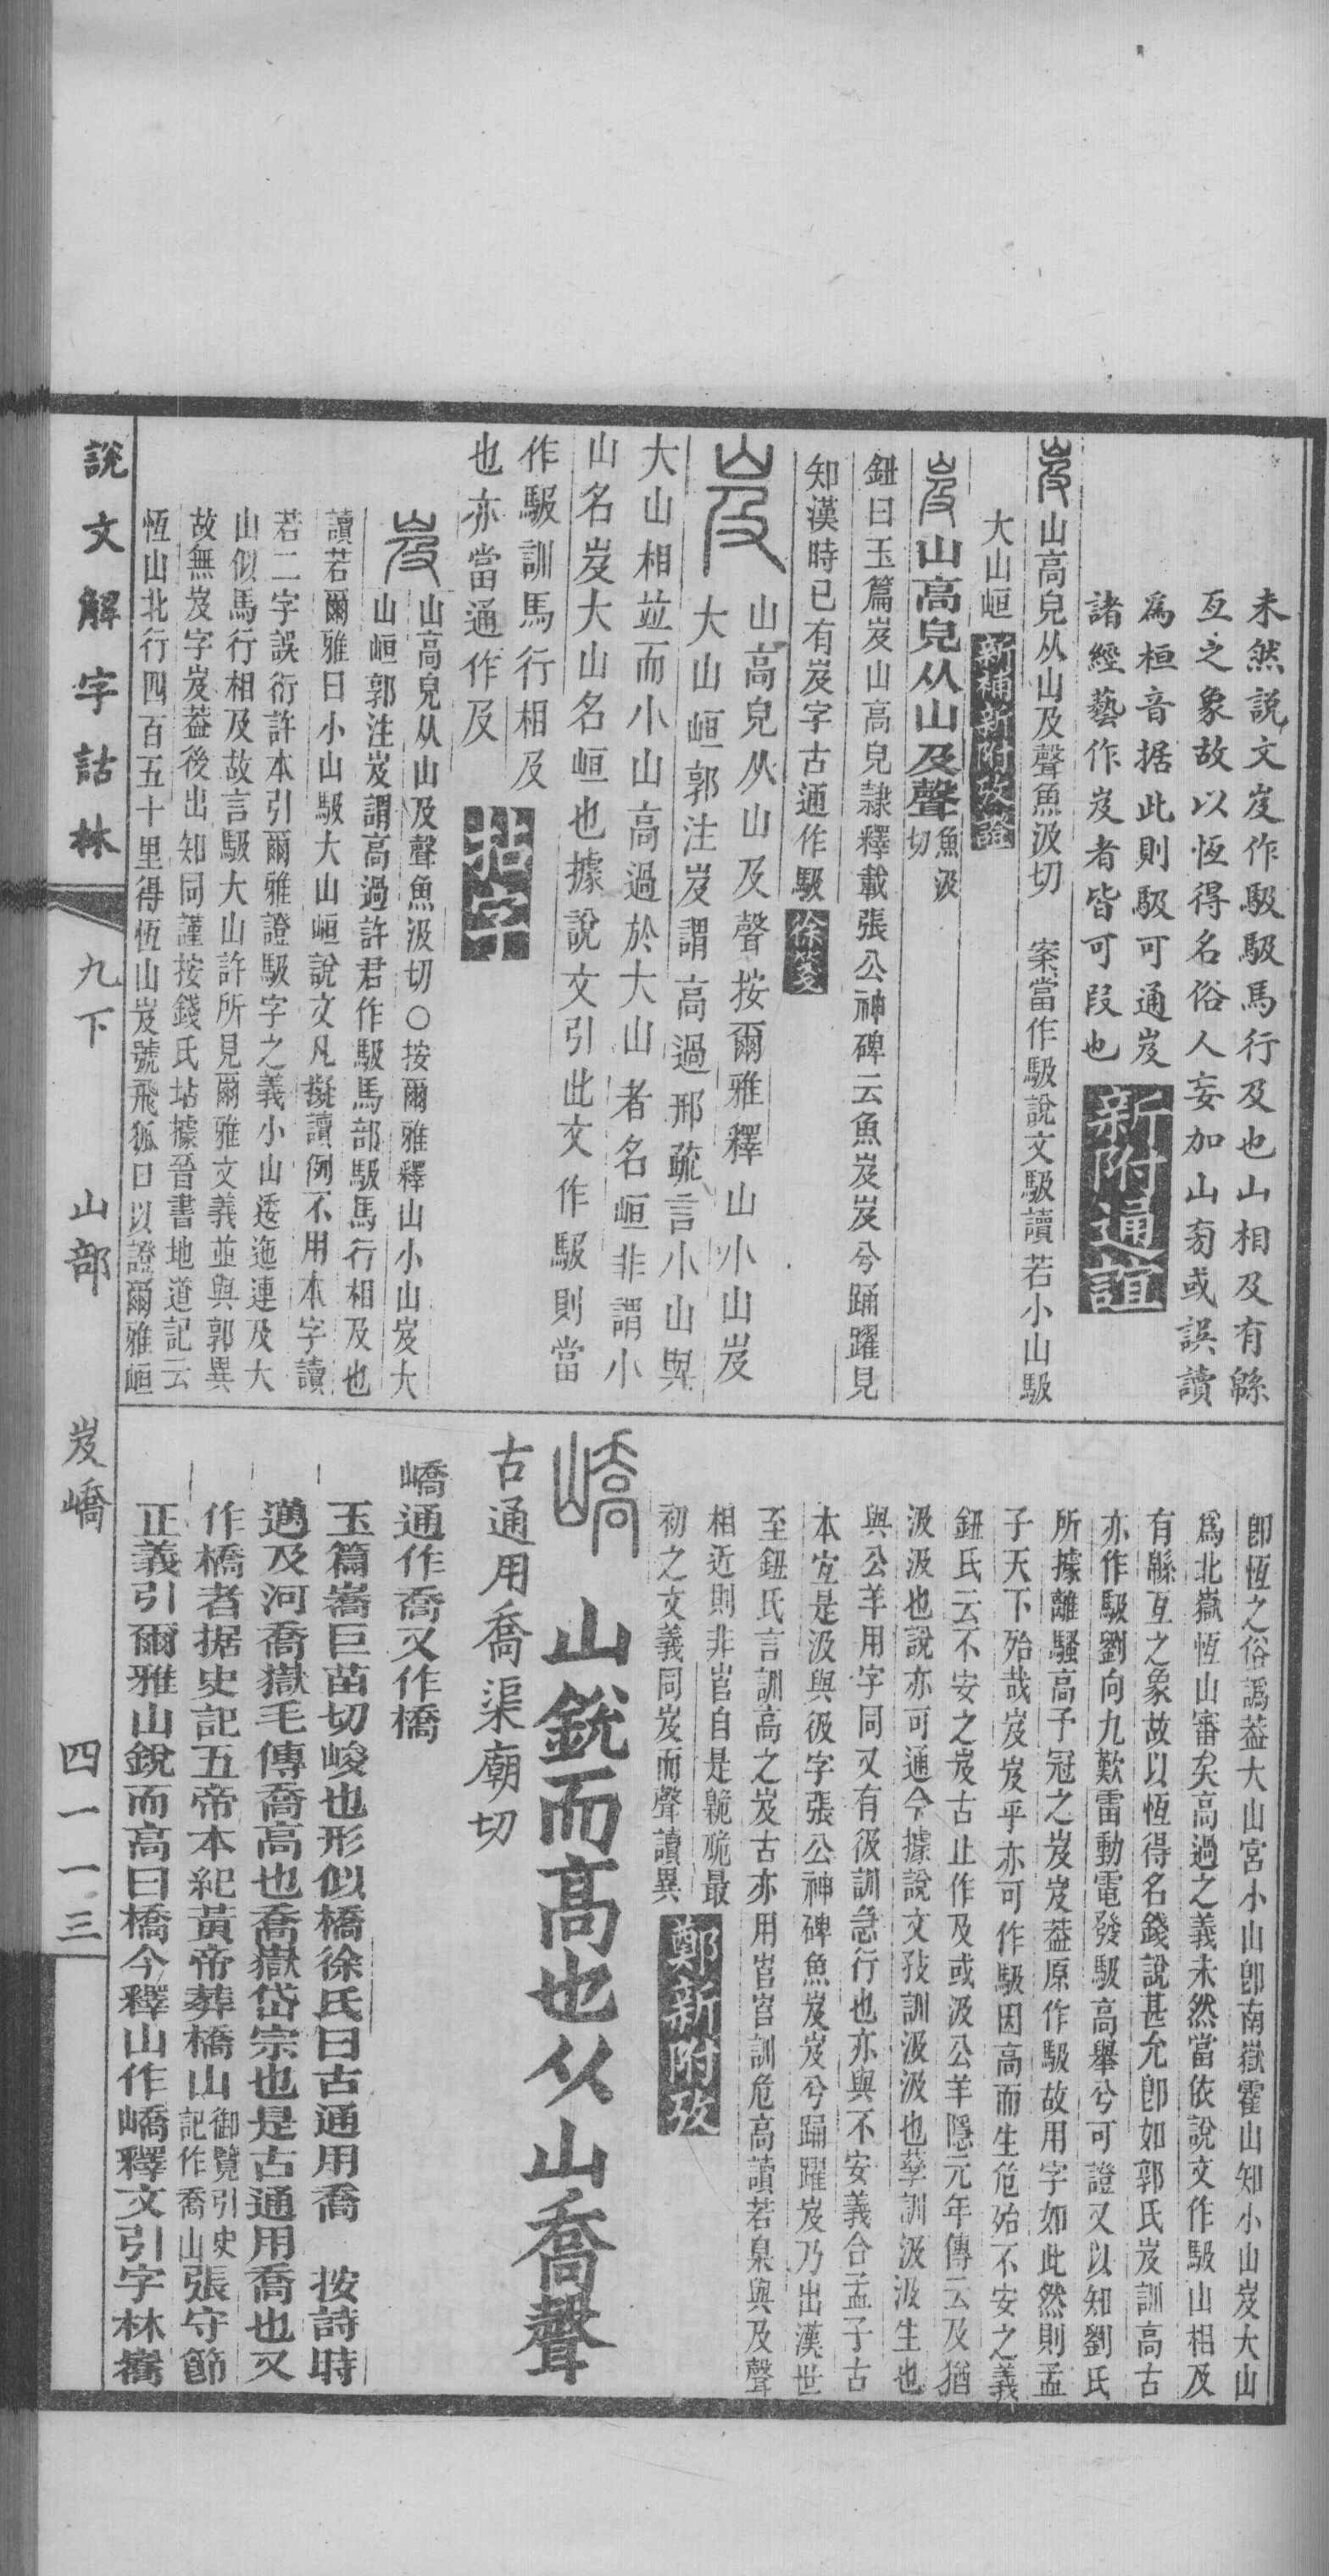 未然說文岌作馺馺馬行及也山相及有緜
亙之象故以恆得名俗人妄加山㫄或誤讀
爲桓音据此則馺可通岌
諸經藝作岌者皆可叚也 新附通誼
岌 山高皃从山及聲魚汲切 案當作馺說文馺讀若小山馺
大山峘 新補新附攷證
岌 山高皃从山及聲 魚汲切
鈕曰玉篇岌山高皃隸釋載張公神碑云魚岌岌兮踊躍見
知漢時已有岌字古通作馺 徐箋
岌 山高皃从山及聲按爾雅釋山小山岌
大山峘郭注岌謂高過邢疏言小山與
大山相竝而小山高過於大山者名峘非謂小
山名岌大山名峘也據說文引此文作馺則當
作馺訓馬行相及
也亦當通作及
岌 山高皃从山及聲魚汲切○按爾雅釋山小山岌大
山峘郭注岌謂高過許君作馺馬部馺馬行相及也
讀若爾雅曰小山馺大山峘說文凡擬讀例不用本字讀
若二字誤衍許本引爾雅證馺字之義小山逶迤連及大
山似馬行相及故言馺大山許所見爾雅文義並與郭異
故無岌字岌葢後出知同謹按錢氏坫據晉書地道記云
恆山北行四百五十里得恆山岌號飛狐口以證爾雅峘
卽恆之俗譌葢大山宮小山卽南嶽霍山知小山岌大山
爲北嶽恆山審矣高過之義未然當依說文作馺山相及
有緜亙之象故以恆得名錢說甚允卽如郭氏岌訓高古
亦作馺劉向九歎雷動電發馺高舉兮可證又以知劉氏
所據離騷高予冠之岌岌葢原作馺故用字如此然則孟
子天下殆哉岌岌乎亦可作馺因高而生危殆不安之義
鈕氏云不安之岌古止作及或汲公羊隱元年傳云及猶
汲汲也說亦可通今據說文孜訓汲汲也孳訓汲汲生也
與公羊用字同又有彶訓急行也亦與不安義合孟子古
本宜是汲與彶字張公神碑魚岌岌兮踊躍岌乃出漢世
至鈕氏言訓高之岌古亦用㟁㟁訓危高讀若臬與及聲
相近則非㟁自是臲卼最
初之文義同岌而聲讀異 鄭新附攷
嶠 山銳而高也从山喬聲
古通用喬渠廟切
嶠通作喬又作橋
玉篇嶠巨苗切峻也形似橋徐氏曰古通用喬 按詩時
邁及河喬嶽毛傳喬高也喬嶽岱宗也是古通用喬也又
作橋者据史記五帝本紀黃帝葬橋山 御覽引史記作喬山 張守節
正義引爾雅山銳而高曰橋今釋山作嶠釋文引字林
說文解字詁林 九下 山部 岌嶠 四一一三